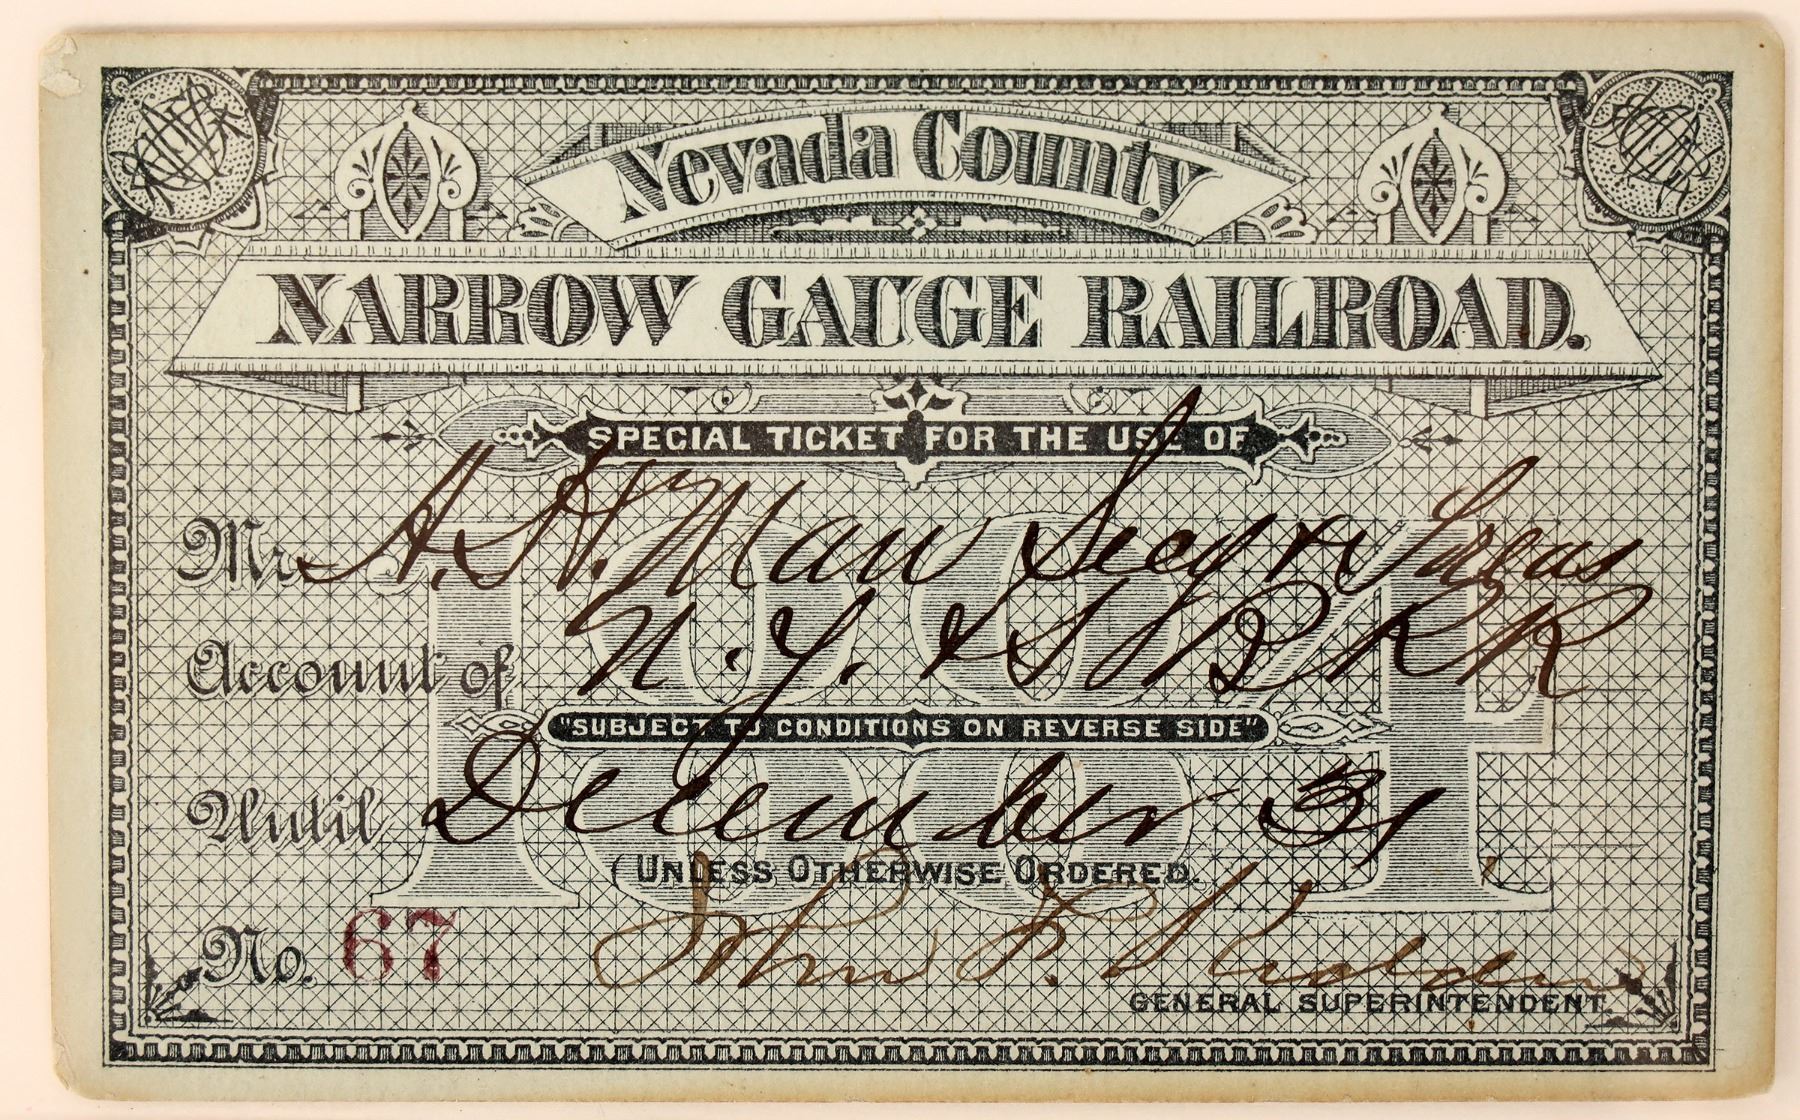 Nevada County
NARROW GAUGE RAILROAD.
SPECIAL TICKET FOR THE USE OF
Mr. A. H. Man Secy & Treas
Account of N.Y. & S. B RR
"SUBJECT TO CONDITIONS ON REVERSE SIDE"
1884
Until December 31
(UNLESS OTHERWISE ORDERED.
No. 67 John F. Kidder
GENERAL SUPERINTENDENT.